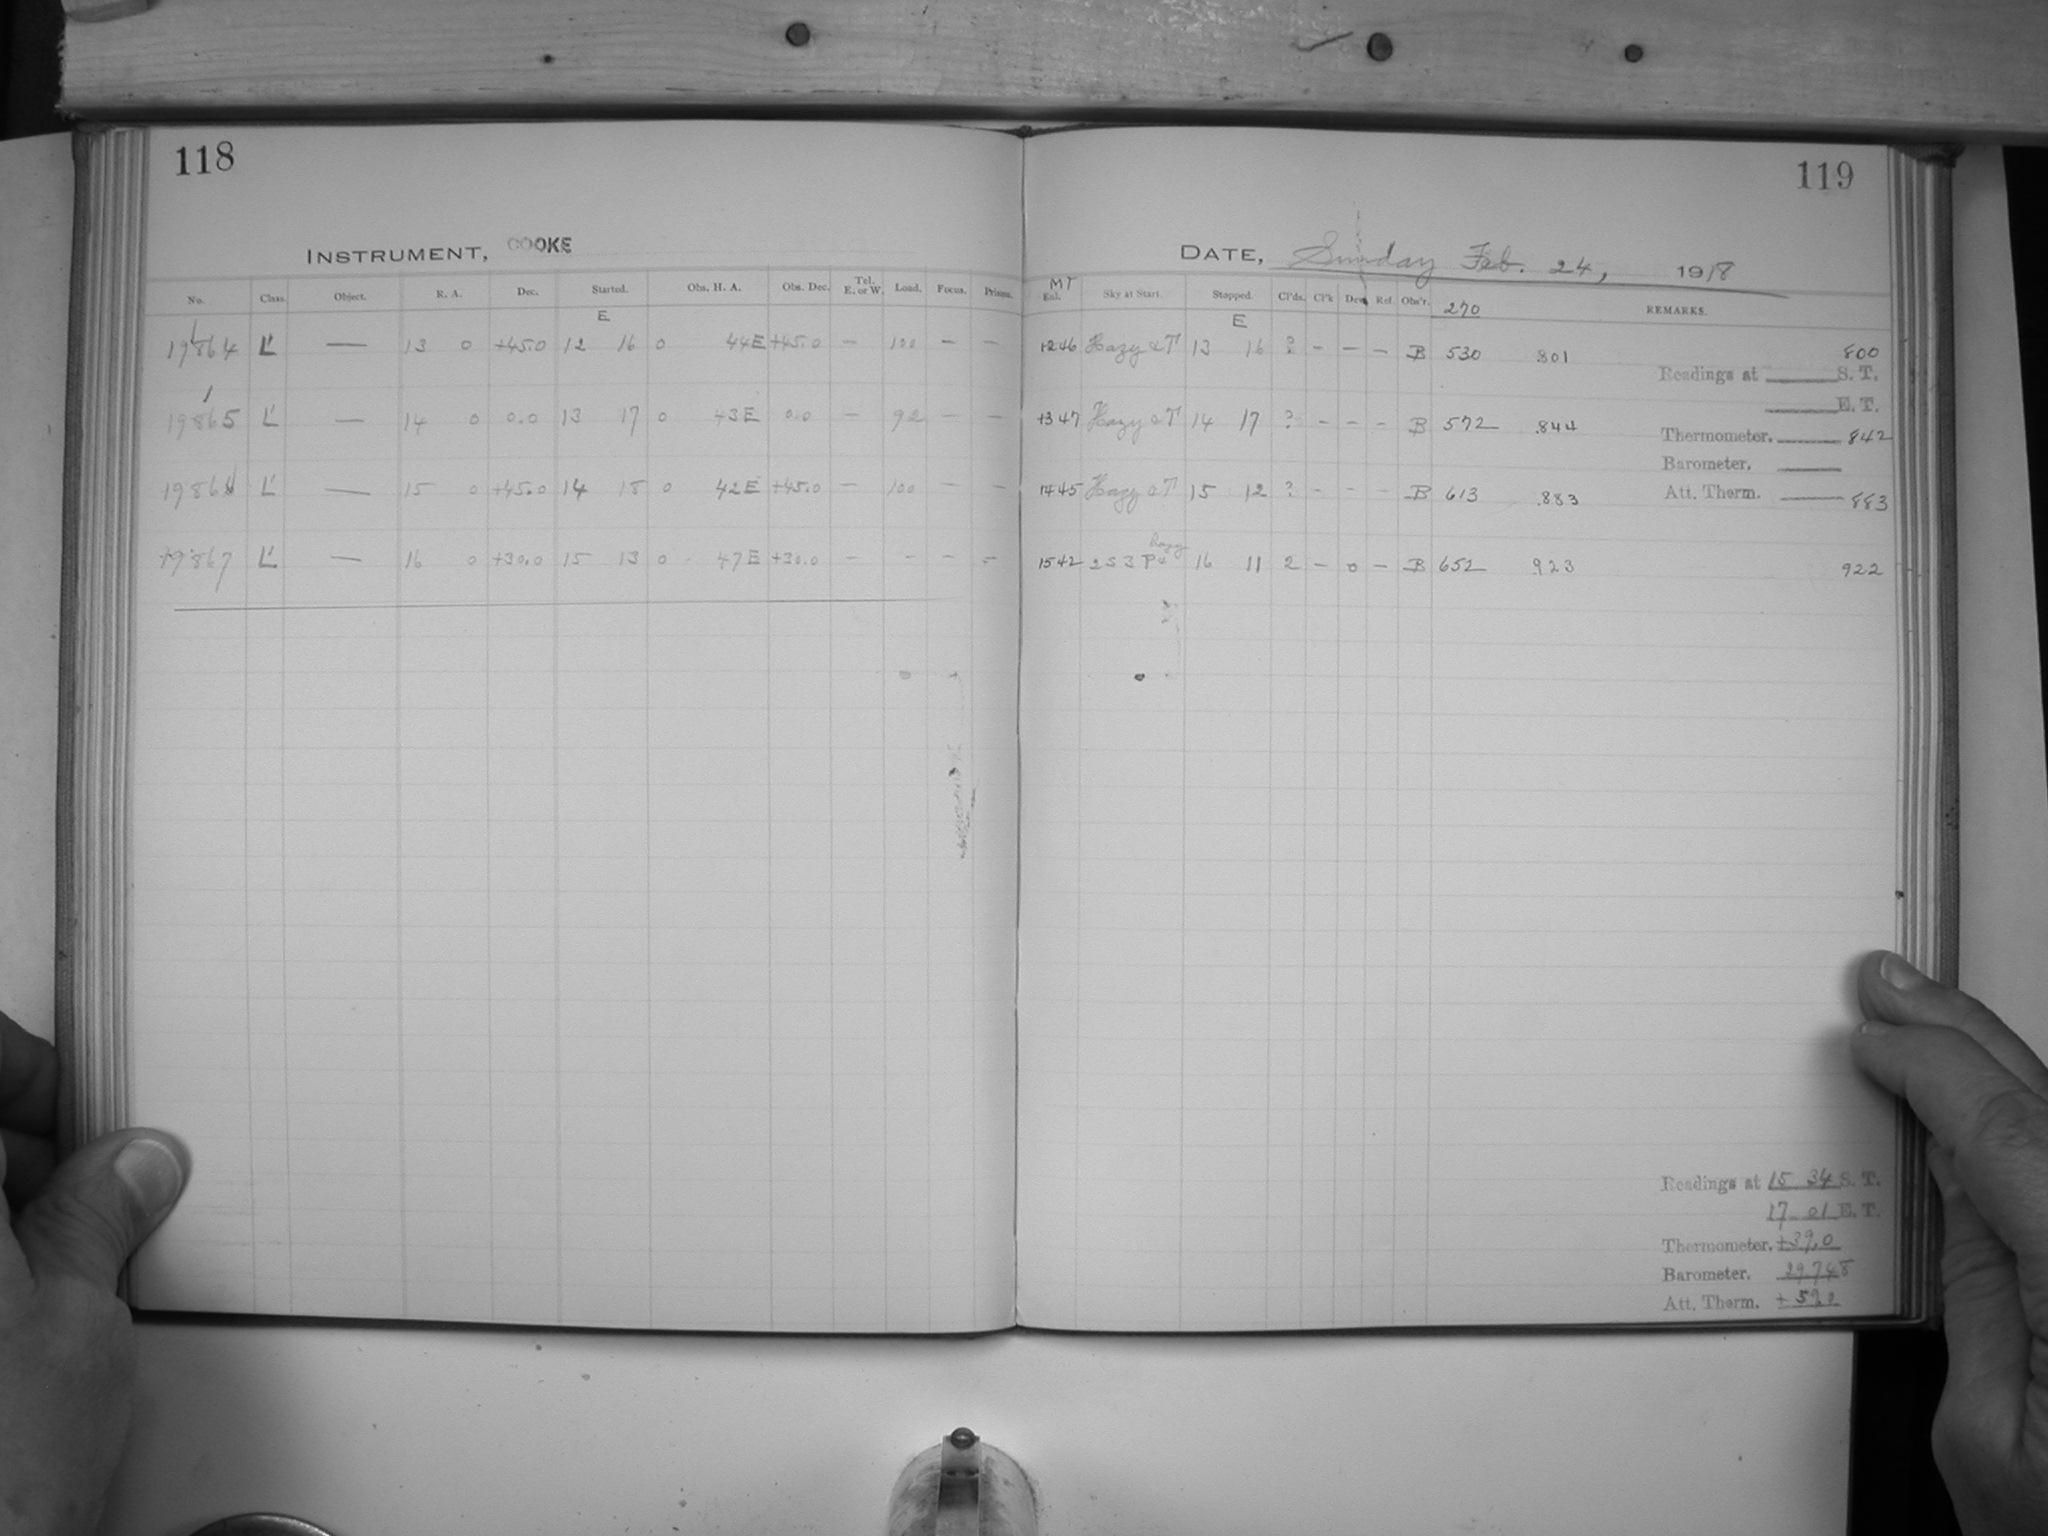 118
INSTRUMENT, COOKE
No. Class. Object. R. A. Dec. Started. Obs. H. A. Obs. Dec. Tel. E. or W. Load. Focus. Prisms.
E
19864 L' — 13 0 +45.0 12 16 0 44E +45.0 — 100 — —
19865 L' — 14 0 0.0 13 17 0 43E 0.0 — 92 — —
1986 L' — 15 0 +45.0 14 18 0 42E +45.0 — 100 — —
19867 L' — 16 0 +30.0 15 13 0 47E +30.0 — - - -
119
DATE, Sunday Feb. 24, 1918
MT
Enl. Sky at Start. Stopped. Cl'ds. Cl'k Dew Ref. Obs'r. 270 REMARKS.
E
1246 Hazy & T 13 16 ? - - - B 530 .801 800
Readings at S. T.
E. T.
1347 Hazy & T 14 17 ? - - - B 572 .844
Thermometer. 842
Barometer.
1445 Hazy & T 15 12 ? - - - B 613 .883
Att. Therm. 883
hazy
1542 2 S 3 P & 16 11 2 - 0 - B 652 923 922
Readings at 15 34 S. T.
17 01 E. T.
Thermometer. +39.0
Barometer. 29.748
Att. Therm. +59.0